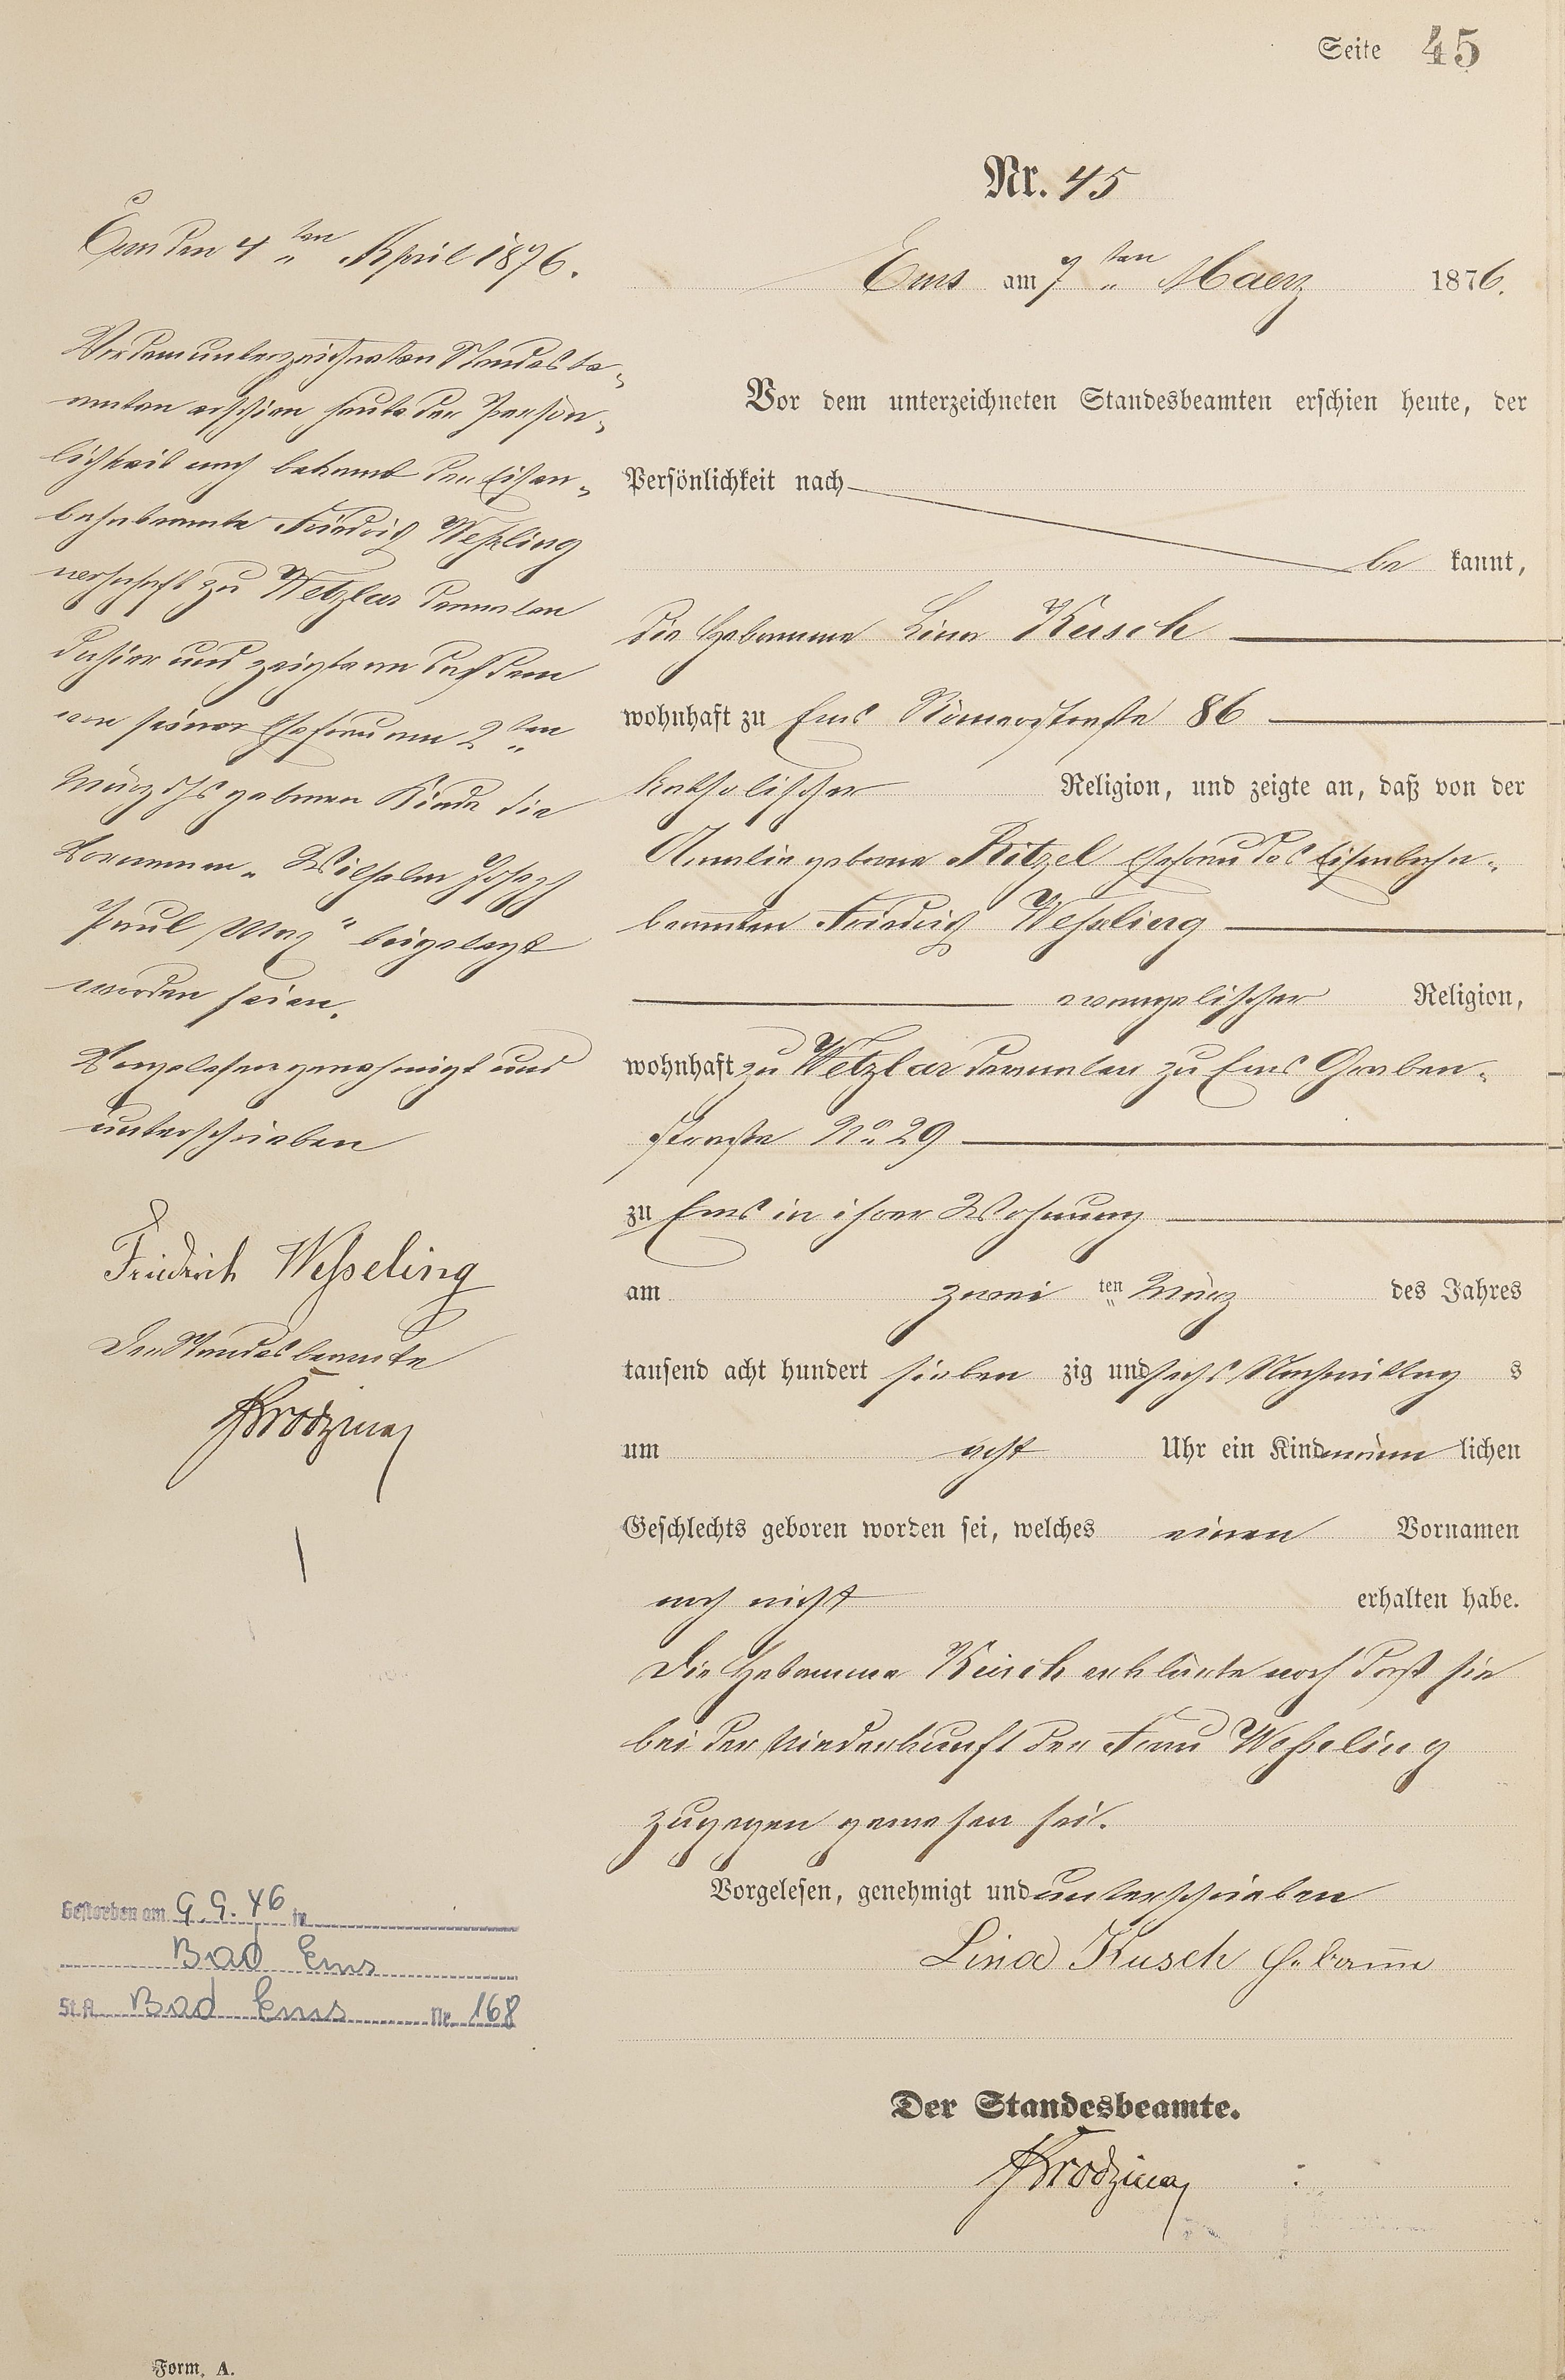 Seite 45
Nr. 45
Ems am 7ten Maerz 1876.
Vor dem unterzeichneten Standesbeamten erschien heute, der
Persönlichkeit nach
be kannt,
die Hebamme Lina Kusch
wohnhaft zu Ems Römerstraße 86
katholischer Religion, und zeigte an, daß von der
Amalie geborne Ritzel Ehefrau des Eisenbahn-
beamten Friedrich Weßeling
evangelischer Religion,
wohnhaft zu Wetzlar dermalen zu Ems Graben-
straße No. 29
zu Ems in ihrer Wohnung
am zwei ten März des Jahres
tausend acht hundert sieben zig und sechs Nachmittag s
um acht Uhr ein Kind männ lichen
Geschlechts geboren worden sei, welches einen Vornamen
noch nicht erhalten habe.
Die Hebamme Kusch erklärte noch daß sie
bei der Niederkunft der Frau Weßeling
zugegen gewesen sei.
Vorgelesen, genehmigt und unterschrieben
Lina Kusch Hebamme
Der Standesbeamte.
Ems den 4ten April 1876.
Vor dem unterzeichneten Standesbe-
amten erschien heute der Persön-
lichkeit nach bekannt der Eisen-
bahnbeamte Friedrich Weßeling
wohnhaft zu Wetzlar dermalen
dahier und zeigte an daß dem
von seiner Ehefrau am 2ten
März ds Js gebornen Kinde die
Vornamen „Wilhelm Joseph
Paul Max" beigelegt
worden seien.
Vorgelesen genehmigt und
unterschrieben
Friedrich Weßeling
Der Standesbeamte
Gestorben am 9.9.46 in
Bad Ems
St.A. Bad Ems Nr. 168
Form. A.